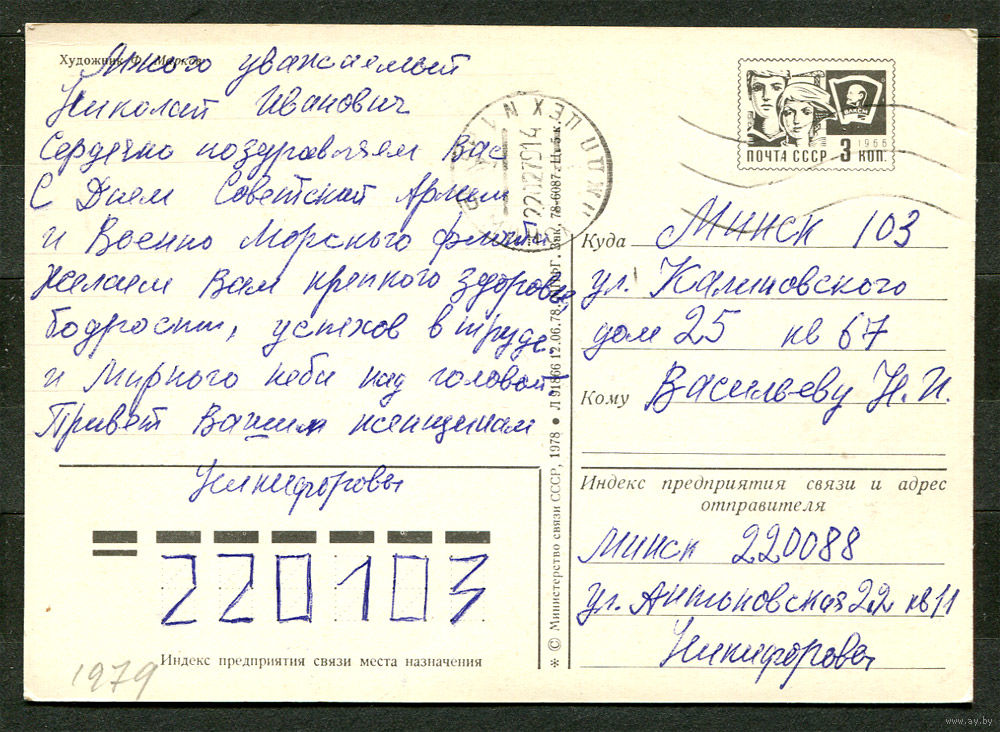 Художник Ф. Марков
Много уважаемый
Николай Иванович
Сердечно поздравляем Вас
С Днем Советской Армии
и Военно Морского флота
желаем Вам крепкого здоровья
бодрости, успехов в труде
и Мирного неба над головой
Привет Вашим женщинам
Никифоровы
220103
Индекс предприятия связи места назначения
1979
✻ © Министерство связи СССР, 1978 ● Л 91866 12.06.78. Зак. 78-6087. Ц. 5 к.
ПОЧТА СССР 3 КОП.
1966
Куда Минск 103
ул. Калиновского
дом 25 кв 67
Кому Васильеву Н. И.
Индекс предприятия связи и адрес
отправителя
Минск 220088
ул. Антоновская 22 кв 11
Никифоровы
www.ay.by